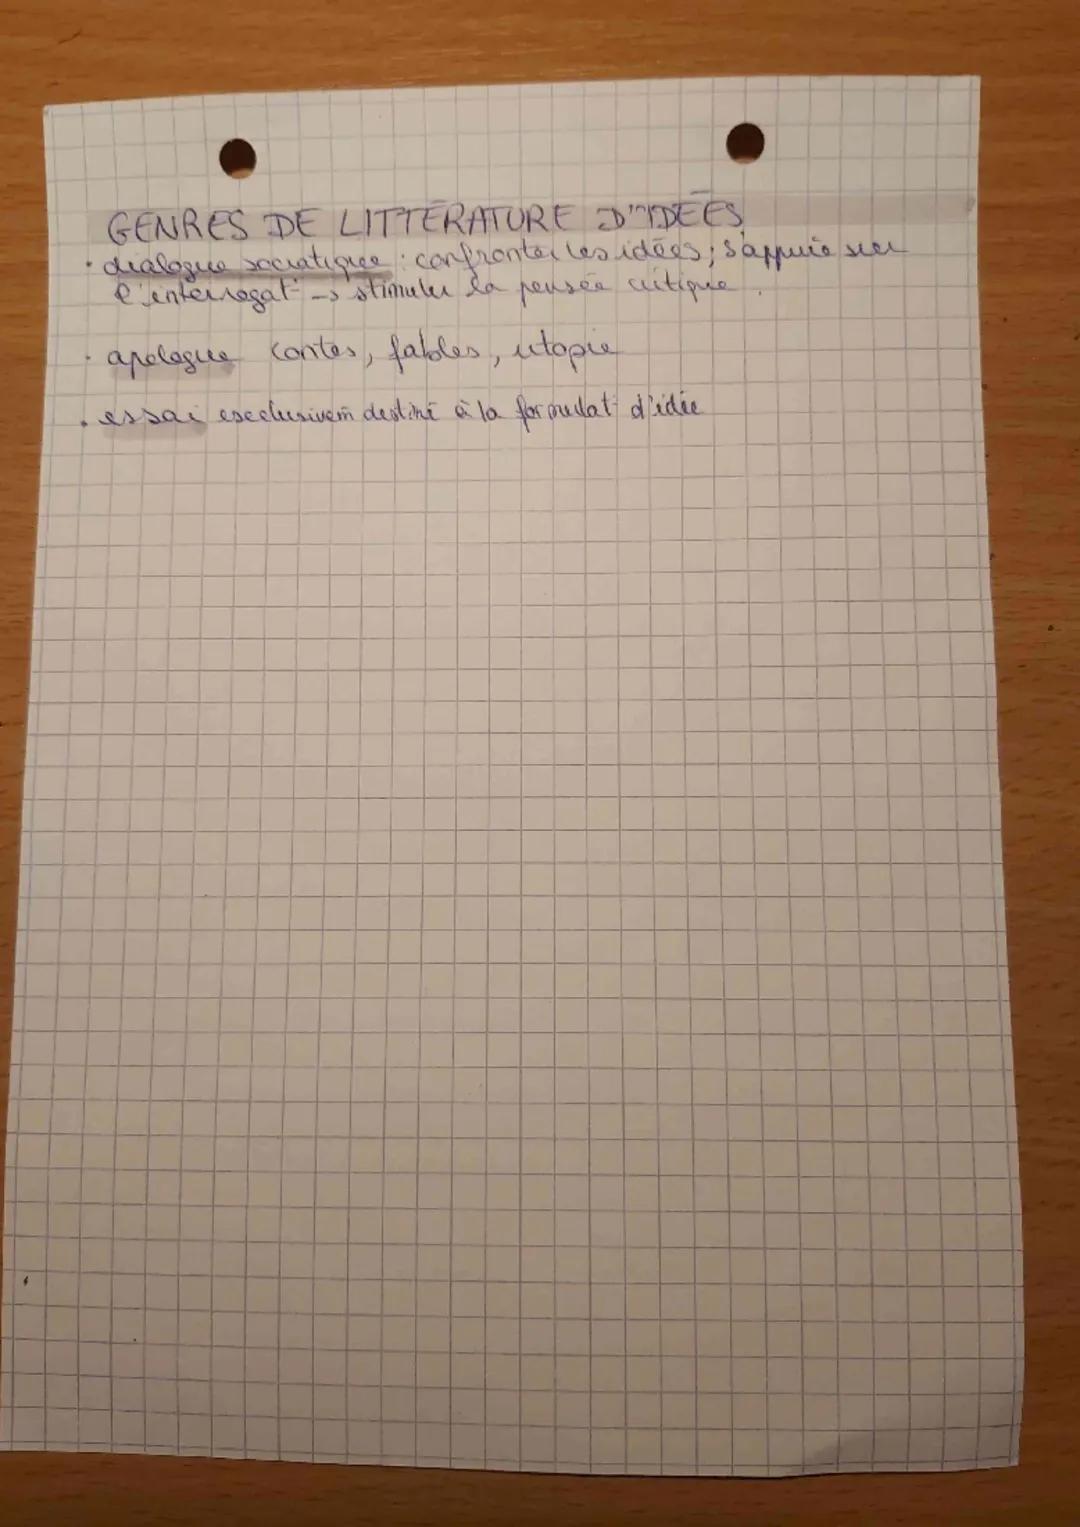 GENRES DE LITTÉRATURE D'IDÉES
· dialogue socratique : confronter les idées ; s'appuie sur
l'interrogat° -> stimuler la pensée critique.
· apologue contes, fables, utopie
· essai exclusivem̄ destiné à la formulat° d'idée